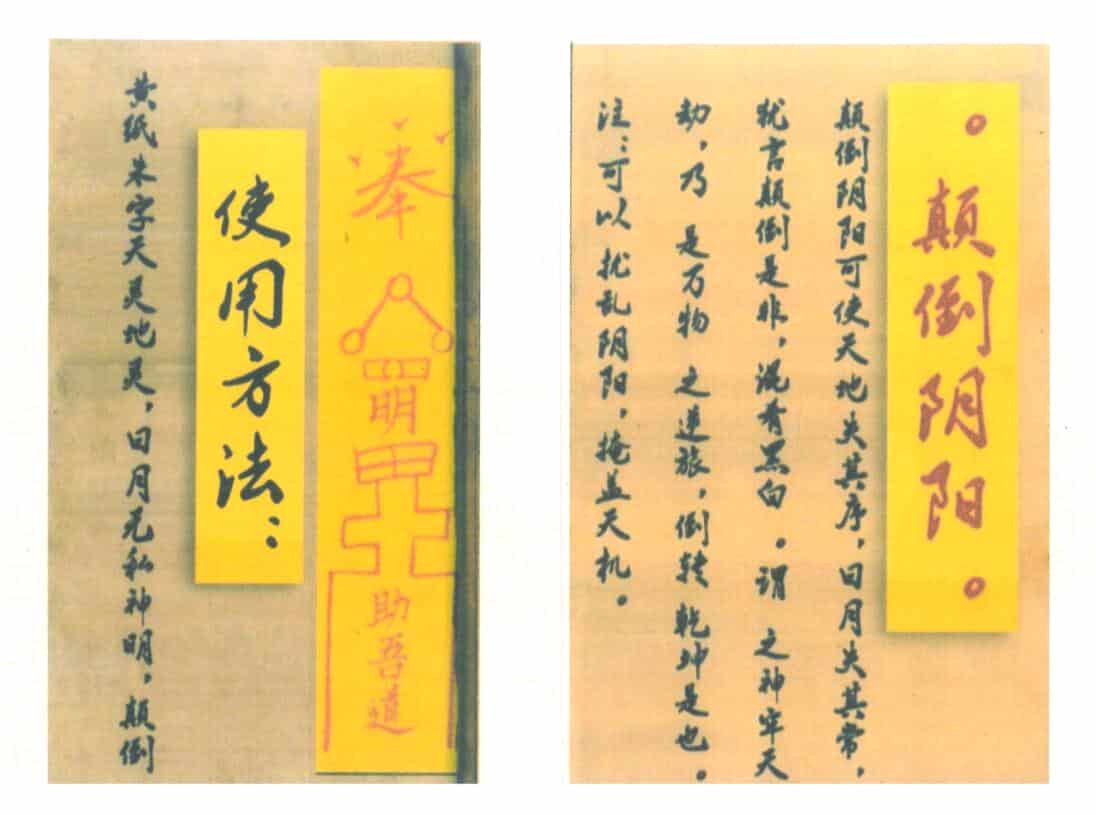 。颠倒阴阳。
颠倒阴阳可使天地失其序，日月失其常，
犹言颠倒是非，混肴黑白。谓之神牢天
劫，乃是万物之逆旅，倒转乾坤是也。
注：可以扰乱阴阳，掩盖天机。
奉
助吾道
使用方法：
黄纸朱字天灵地灵，日月无私神明，颠倒